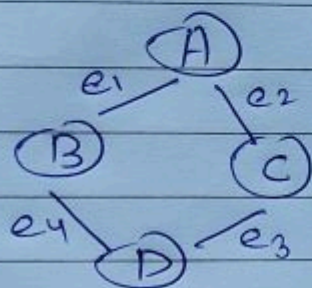 A
e1 e2
B C
e4 e3
D